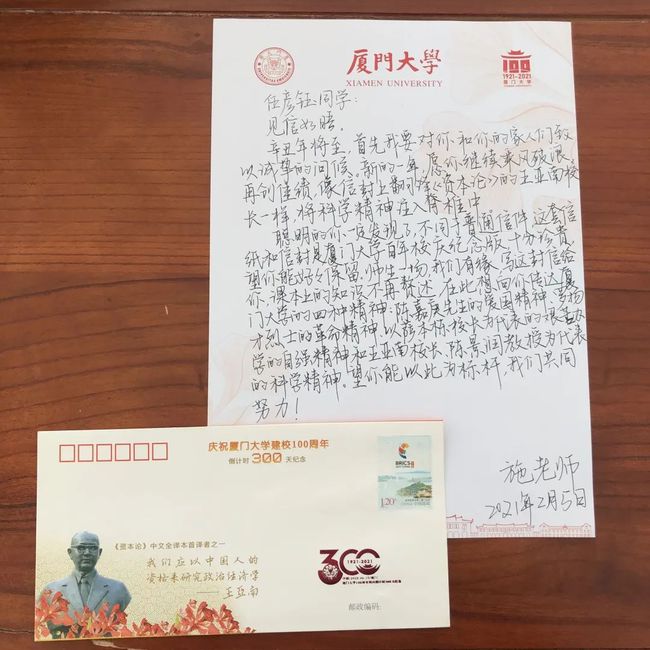 厦門大學
XIAMEN UNIVERSITY
100
1921-2021
厦门大学
任彦钰同学：
见信好晤。
辛丑年将至，首先我要对你和你的家人们致
以诚挚的问候。新的一年，愿你继续乘风破浪，
再创佳绩，像信封上翻译《资本论》的王亚南校
长一样，将科学精神注入脊椎中。
聪明的你一定发现了，不同于普通信件，这套信
纸和信封是厦门大学百年校庆纪念版，十分珍贵，
望你能好好保留。师生一场，我们有缘，写这封信给
你，课本上的知识不再赘述，在此想向你传达厦
门大学的四种精神：陈嘉庚先生的爱国精神，罗扬
才烈士的革命精神，以萨本栋校长为代表的艰苦办
学的自强精神和王亚南校长、陈景润教授为代表
的科学精神。望你能以此为标杆，我们共同
努力！
施老师
2021年2月5日
庆祝厦门大学建校100周年
倒计时300天纪念
BRICS
1.20
《资本论》中文全译本首译者之一
我们应以中国人的
资格来研究政治经济学
——王亚南
300
1921-2021
邮政编码：